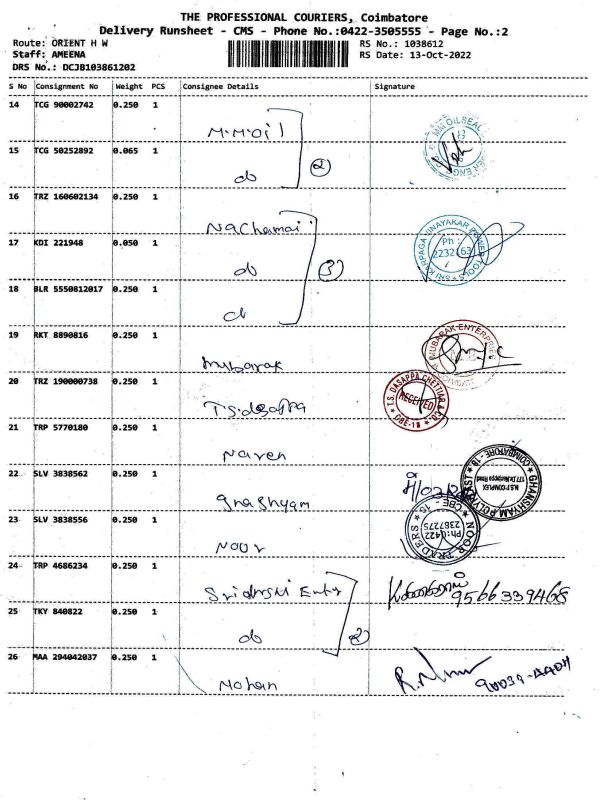 THE PROFESSIONAL COURIERS, Coimbatore
Delivery Runsheet - CMS - Phone No.:0422-3505555 - Page No.:2
Route: ORIENT H W
RS No.: 1038612
Staff: AMEENA
RS Date: 13-Oct-2022
DRS No.: DCJB103861202
S No Consignment No Weight PCS Consignee Details Signature
14 TCG 90002742 0.250 1 M.M.oil MM OILSEAL
15 TCG 50252892 0.065 1 do (2)
16 TRZ 160602134 0.250 1 Nachamai
17 KDI 221948 0.050 1 do (3) SRI KARPAGA VINAYAKAR POWER TOOLS Ph : 2232163
18 BLR 5550812017 0.250 1 d
19 RKT 8890816 0.250 1 mubarak MUBARAK ENTERPRISES
20 TRZ 190000738 0.250 1 T.S.dasappa T.S. DASAPPA CHETTIAR & CO. RECEIVED CBE-18
21 TRP 5770180 0.250 1 Naren
22 SLV 3838562 0.250 1 gnashyam GHANSHYAM POLYPLAST COIMBATORE - 18 N.S.F COMPLEX
23 SLV 3838556 0.250 1 Noor NOOR TRADERS CBE - 16 Ph:0422 2387275
24 TRP 4686234 0.250 1 9566339468
25 TKY 840822 0.250 1 do (2)
26 MAA 294042037 0.250 1 Mohan